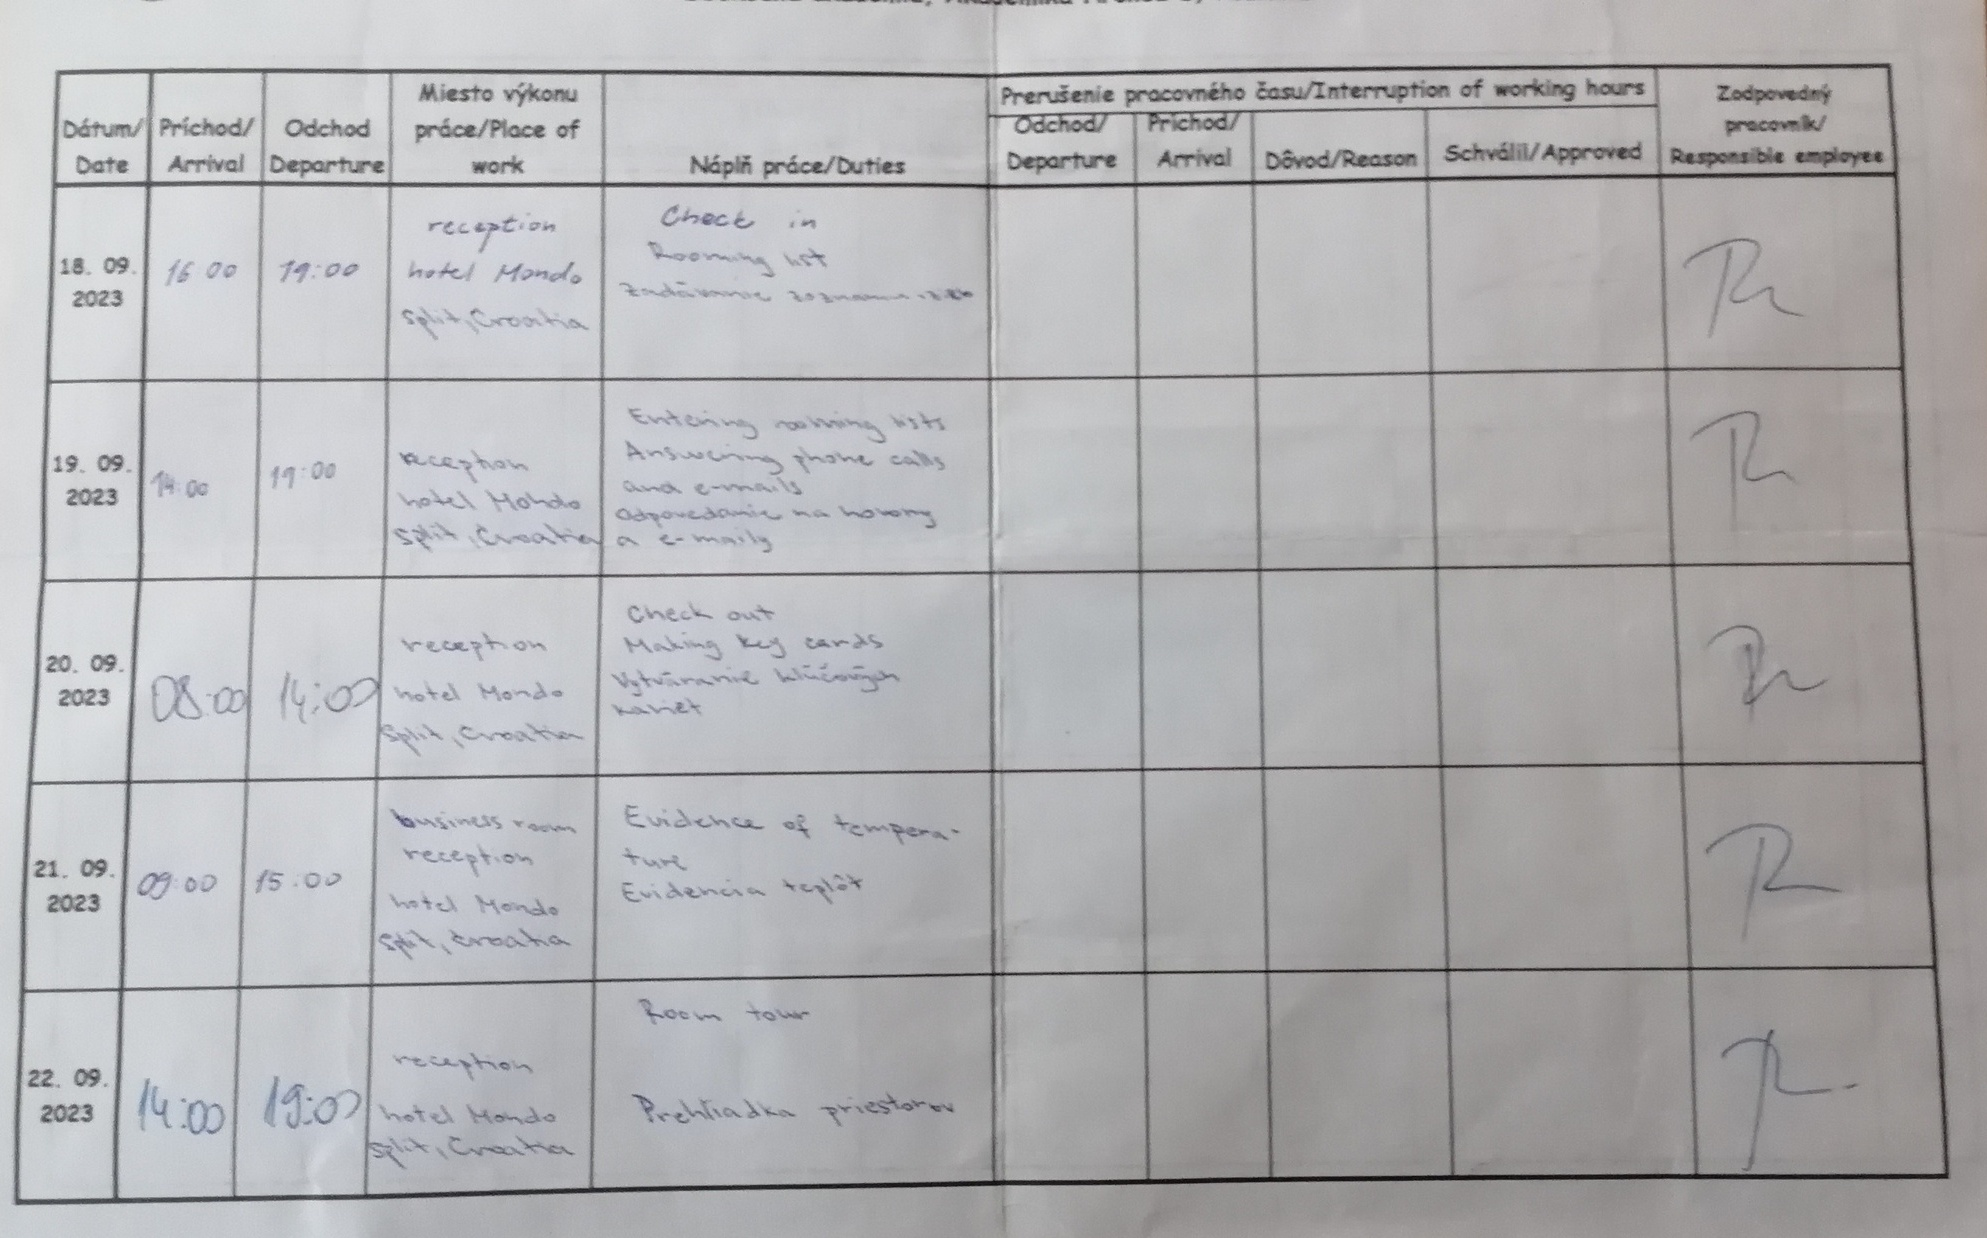 Dátum/
Date
Príchod/
Arrival
Odchod
Departure
Miesto výkonu
práce/Place of
work
Náplň práce/Duties
Prerušenie pracovného času/Interruption of working hours
Odchod/
Departure
Príchod/
Arrival
Dôvod/Reason
Schválil/Approved
Zodpovedný
pracovník/
Responsible employee
18. 09.
2023
16 00
19:00
reception
hotel Mondo
Split, Croatia
Check in
Rooming list
Zadávanie zoznamu
19. 09.
2023
14:00
19:00
reception
hotel Mondo
Split, Croatia
Entering rooming lists
Answering phone calls
and e-mails
Odpovedanie na hovory
a e-maily
20. 09.
2023
08:00
14:00
reception
hotel Mondo
Split, Croatia
Check out
Making key cards
Vytváranie kľúčových
kariet
21. 09.
2023
09:00
15:00
business room
reception
hotel Mondo
Split, Croatia
Evidence of tempera-
ture
Evidencia teplôt
22. 09.
2023
14:00
19:00
reception
hotel Mondo
Split, Croatia
Room tour
Prehliadka priestorov